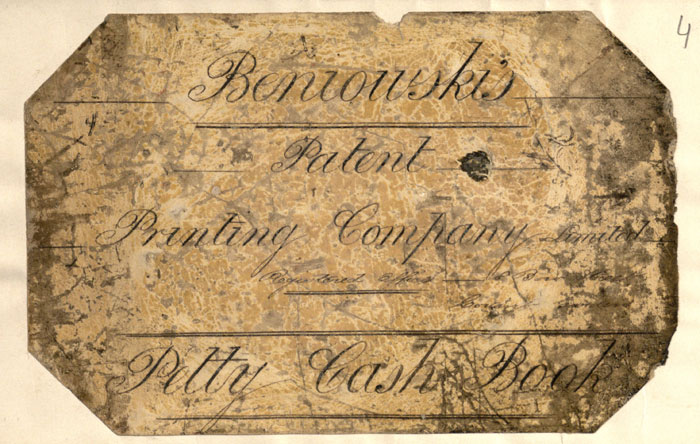 4
Beniowski's
Patent
Printing Company Limited
Registered Office
Petty Cash Book